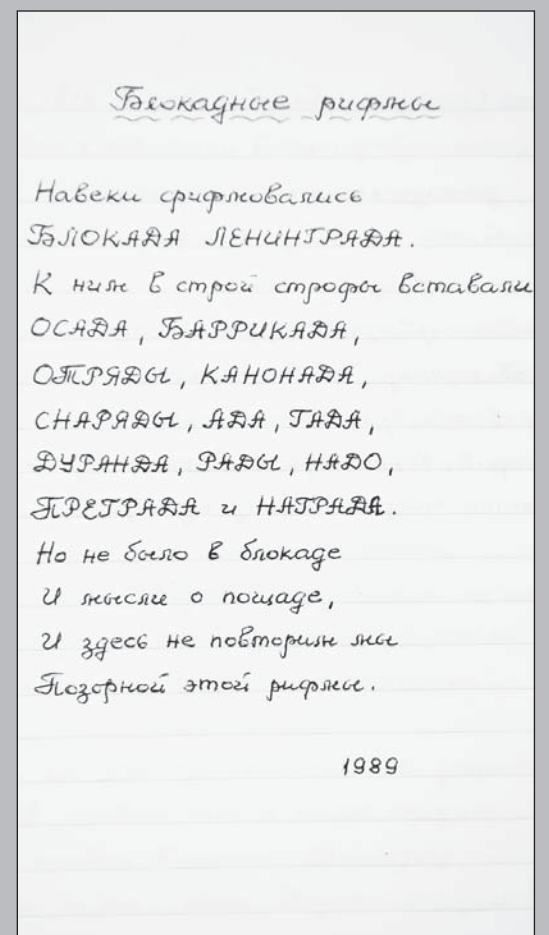 Блокадные рифмы
Навеки срифмовались
БЛОКАДА ЛЕНИНГРАДА.
К ним в строй строфы вставали
ОСАДА, БАРРИКАДА,
ОТРЯДЫ, КАНОНАДА,
СНАРЯДЫ, АДА, ГАДА,
ДУРАНДА, РАДЫ, НАДО,
ПРЕГРАДА и НАГРАДА.
Но не было в блокаде
И мысли о пощаде,
И здесь не повторим мы
Позорной этой рифмы.
1989